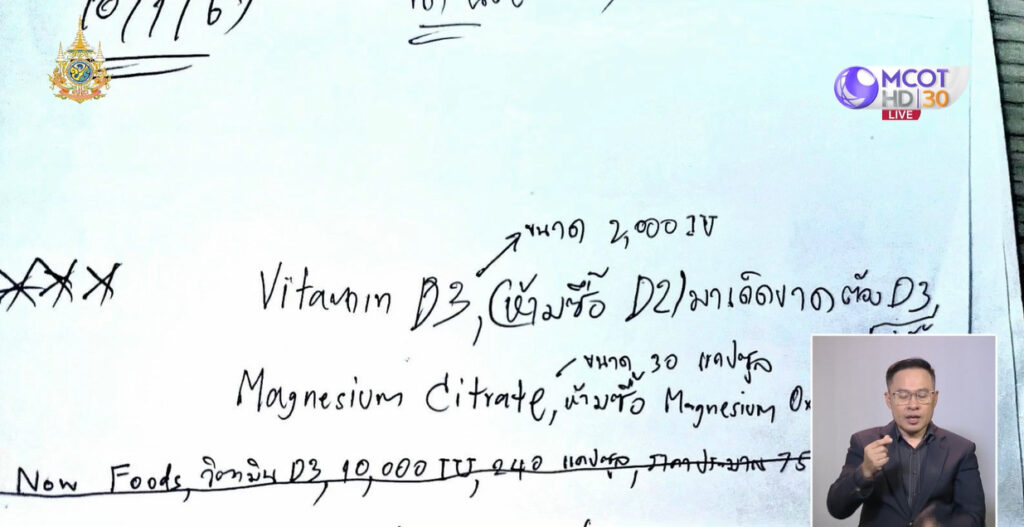 10/1/67
MCOT
HD 30
LIVE
ขนาด 2,000 IU
Vitamin D3, (ห้ามซื้อ D2) มาเด็ดขาด ต้อง D3,
ขนาด 30 แคปซูล
Magnesium Citrate, ห้ามซื้อ Magnesium
Now Foods, วิตามิน D3, 10,000 IU, 240 แคปซูล, ราคาประมาณ 75